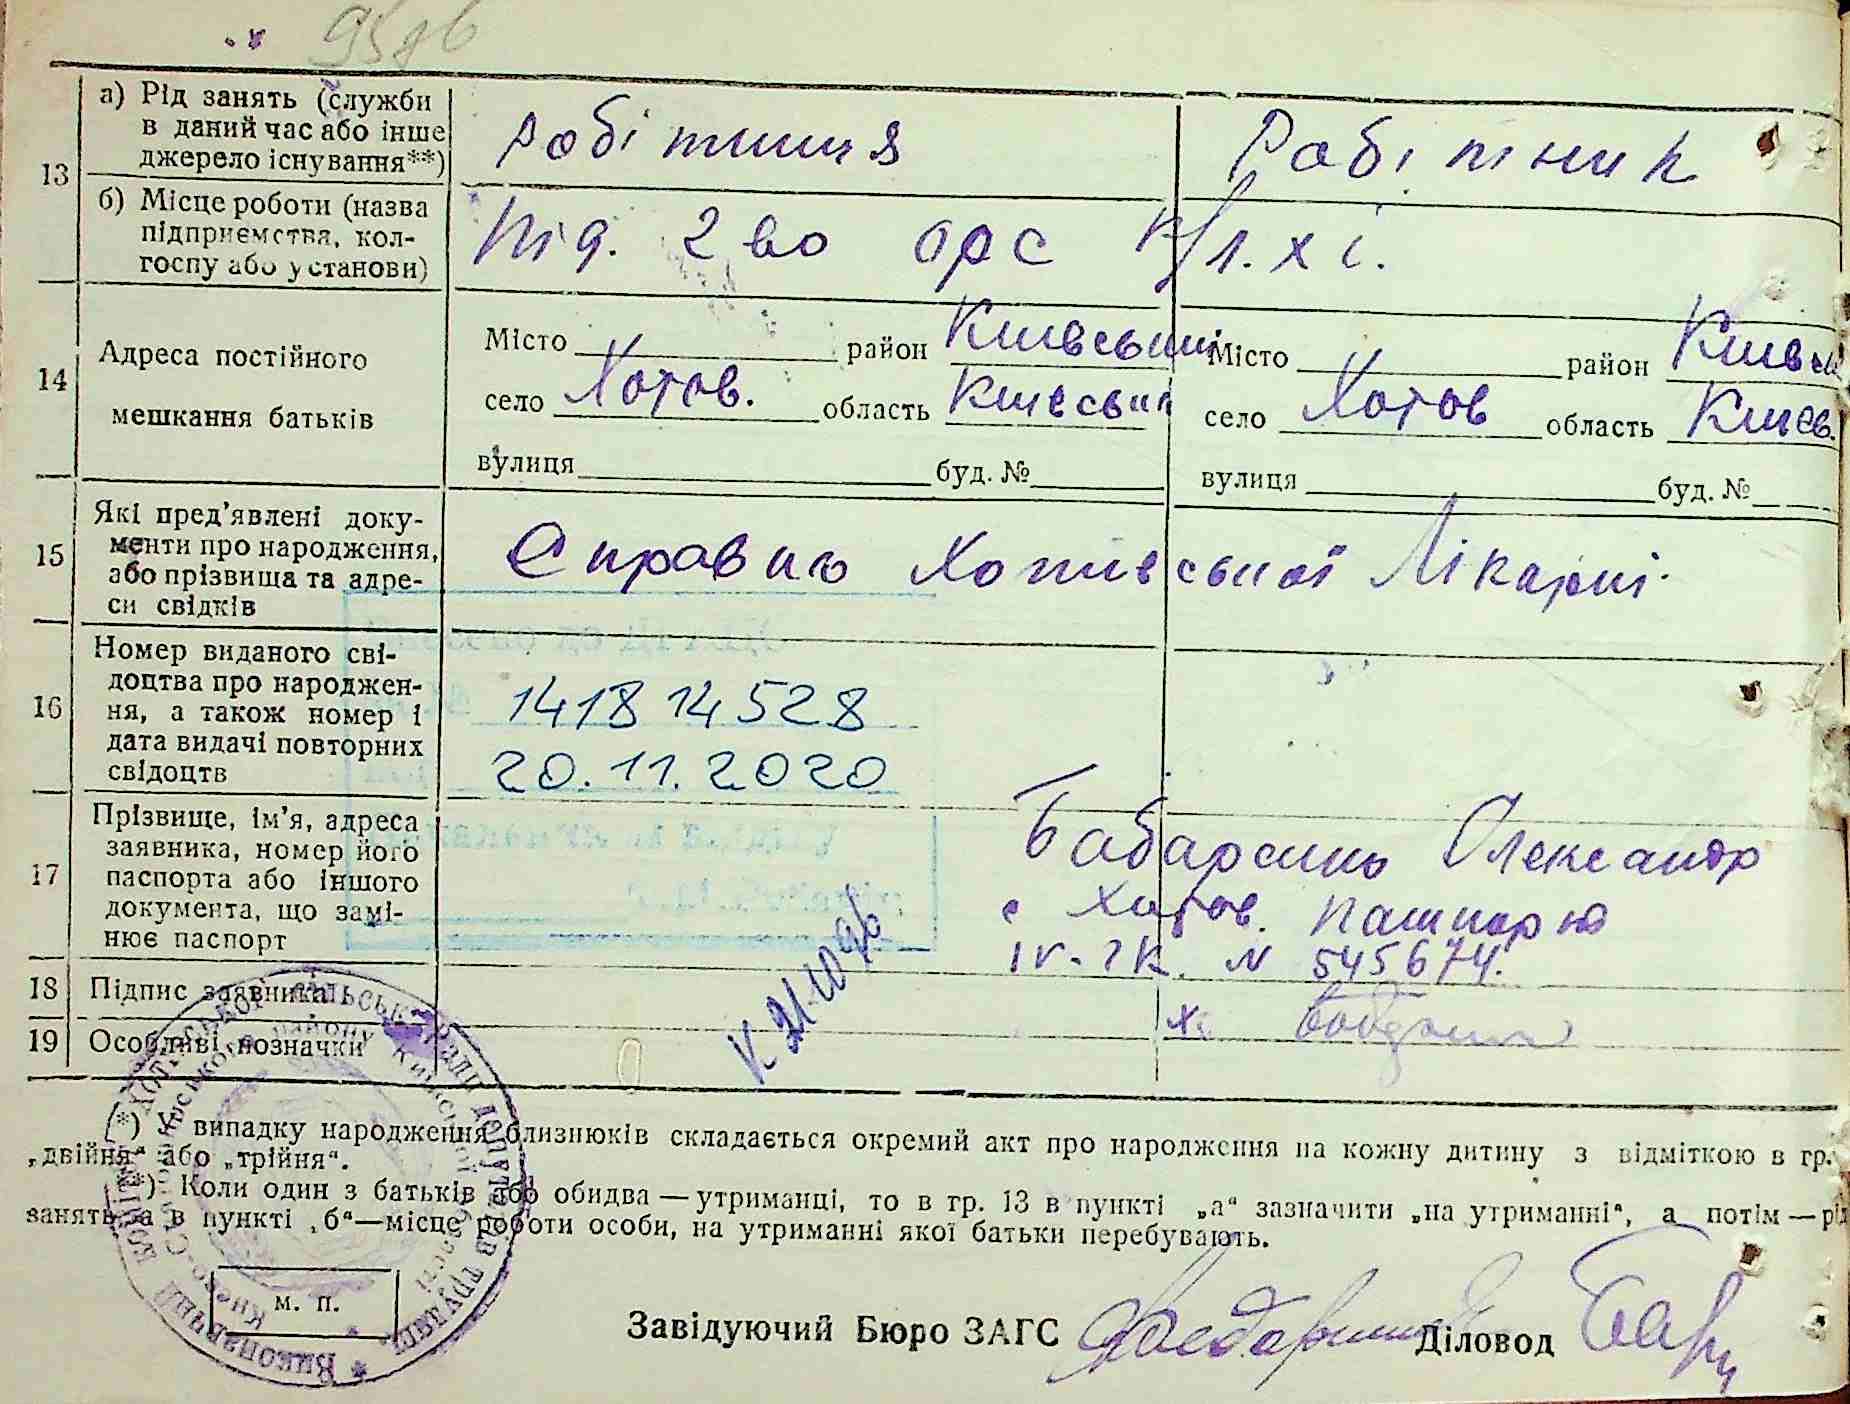 13
а) Рід занять (служби
в даний час або інше
джерело існування**)
Робітниця
Робітник
б) Місце роботи (назва
підприємства, кол-
госпу або установи)
Від. 2 во орс
14
Адреса постійного
мешкання батьків
Місто район Київський
село Хотов. область Київськ
вулиця буд. №
Місто район Київськ
село Хотов область Києв.
вулиця буд. №
15
Які пред'явлені доку-
менти про народження,
або прізвища та адре-
си свідків
Справка Хотівської Лікарні.
16
Номер виданого сві-
доцтва про народжен-
ня, а також номер і
дата видачі повторних
свідоцтв
141814528
20.11.2020
17
Прізвище, ім'я, адреса
заявника, номер його
паспорта або іншого
документа, що замі-
нює паспорт
Олександр
с Хотов. пашпорт
IV-ГК. N 545674.
18
Підпис заявника
19
Особливі позначки
*) У випадку народження близнюків складається окремий акт про народження на кожну дитину з відміткою в гр.
„двійня“ або „трійня“.
**) Коли один з батьків або обидва — утриманці, то в гр. 13 в пункті „а“ зазначити „на утриманні“, а потім — рід
занять, а в пункті „б“—місце роботи особи, на утриманні якої батьки перебувають.
м. п.
Завідуючий Бюро ЗАГС
Діловод